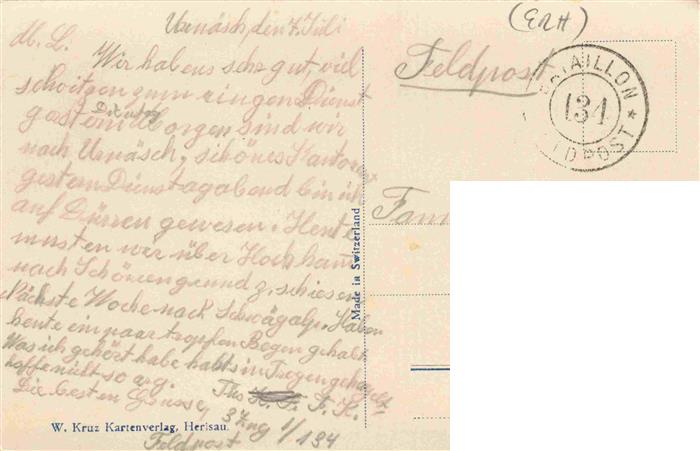 Urnäsch, den 7. Juli
M. L. Wir haben sehr gut, viel
schwitzen zum ringen Dienst
Dienstag
gestern Morgen sind wir
nach Urnäsch, schönes Kantonn
gestern Dienstagabend bin ich
auf Dürren gewesen. Heute
musten wir über Hochham
nach Schönengrund z. schiesen
Nächste Woche nach Schwägalp. Haben
heute ein paar tropfen Regen gehabt
Was ich gehört habe habts in Trogen gehagelt
hoffe nicht so arg.
Die besten Grüsse,
3 Zug 1/134
Feldpost
W. Kruz Kartenverlag, Herisau.
Made in Switzerland
(ERH)
Feldpost
BATAILLON
134
FELDPOST
Fam